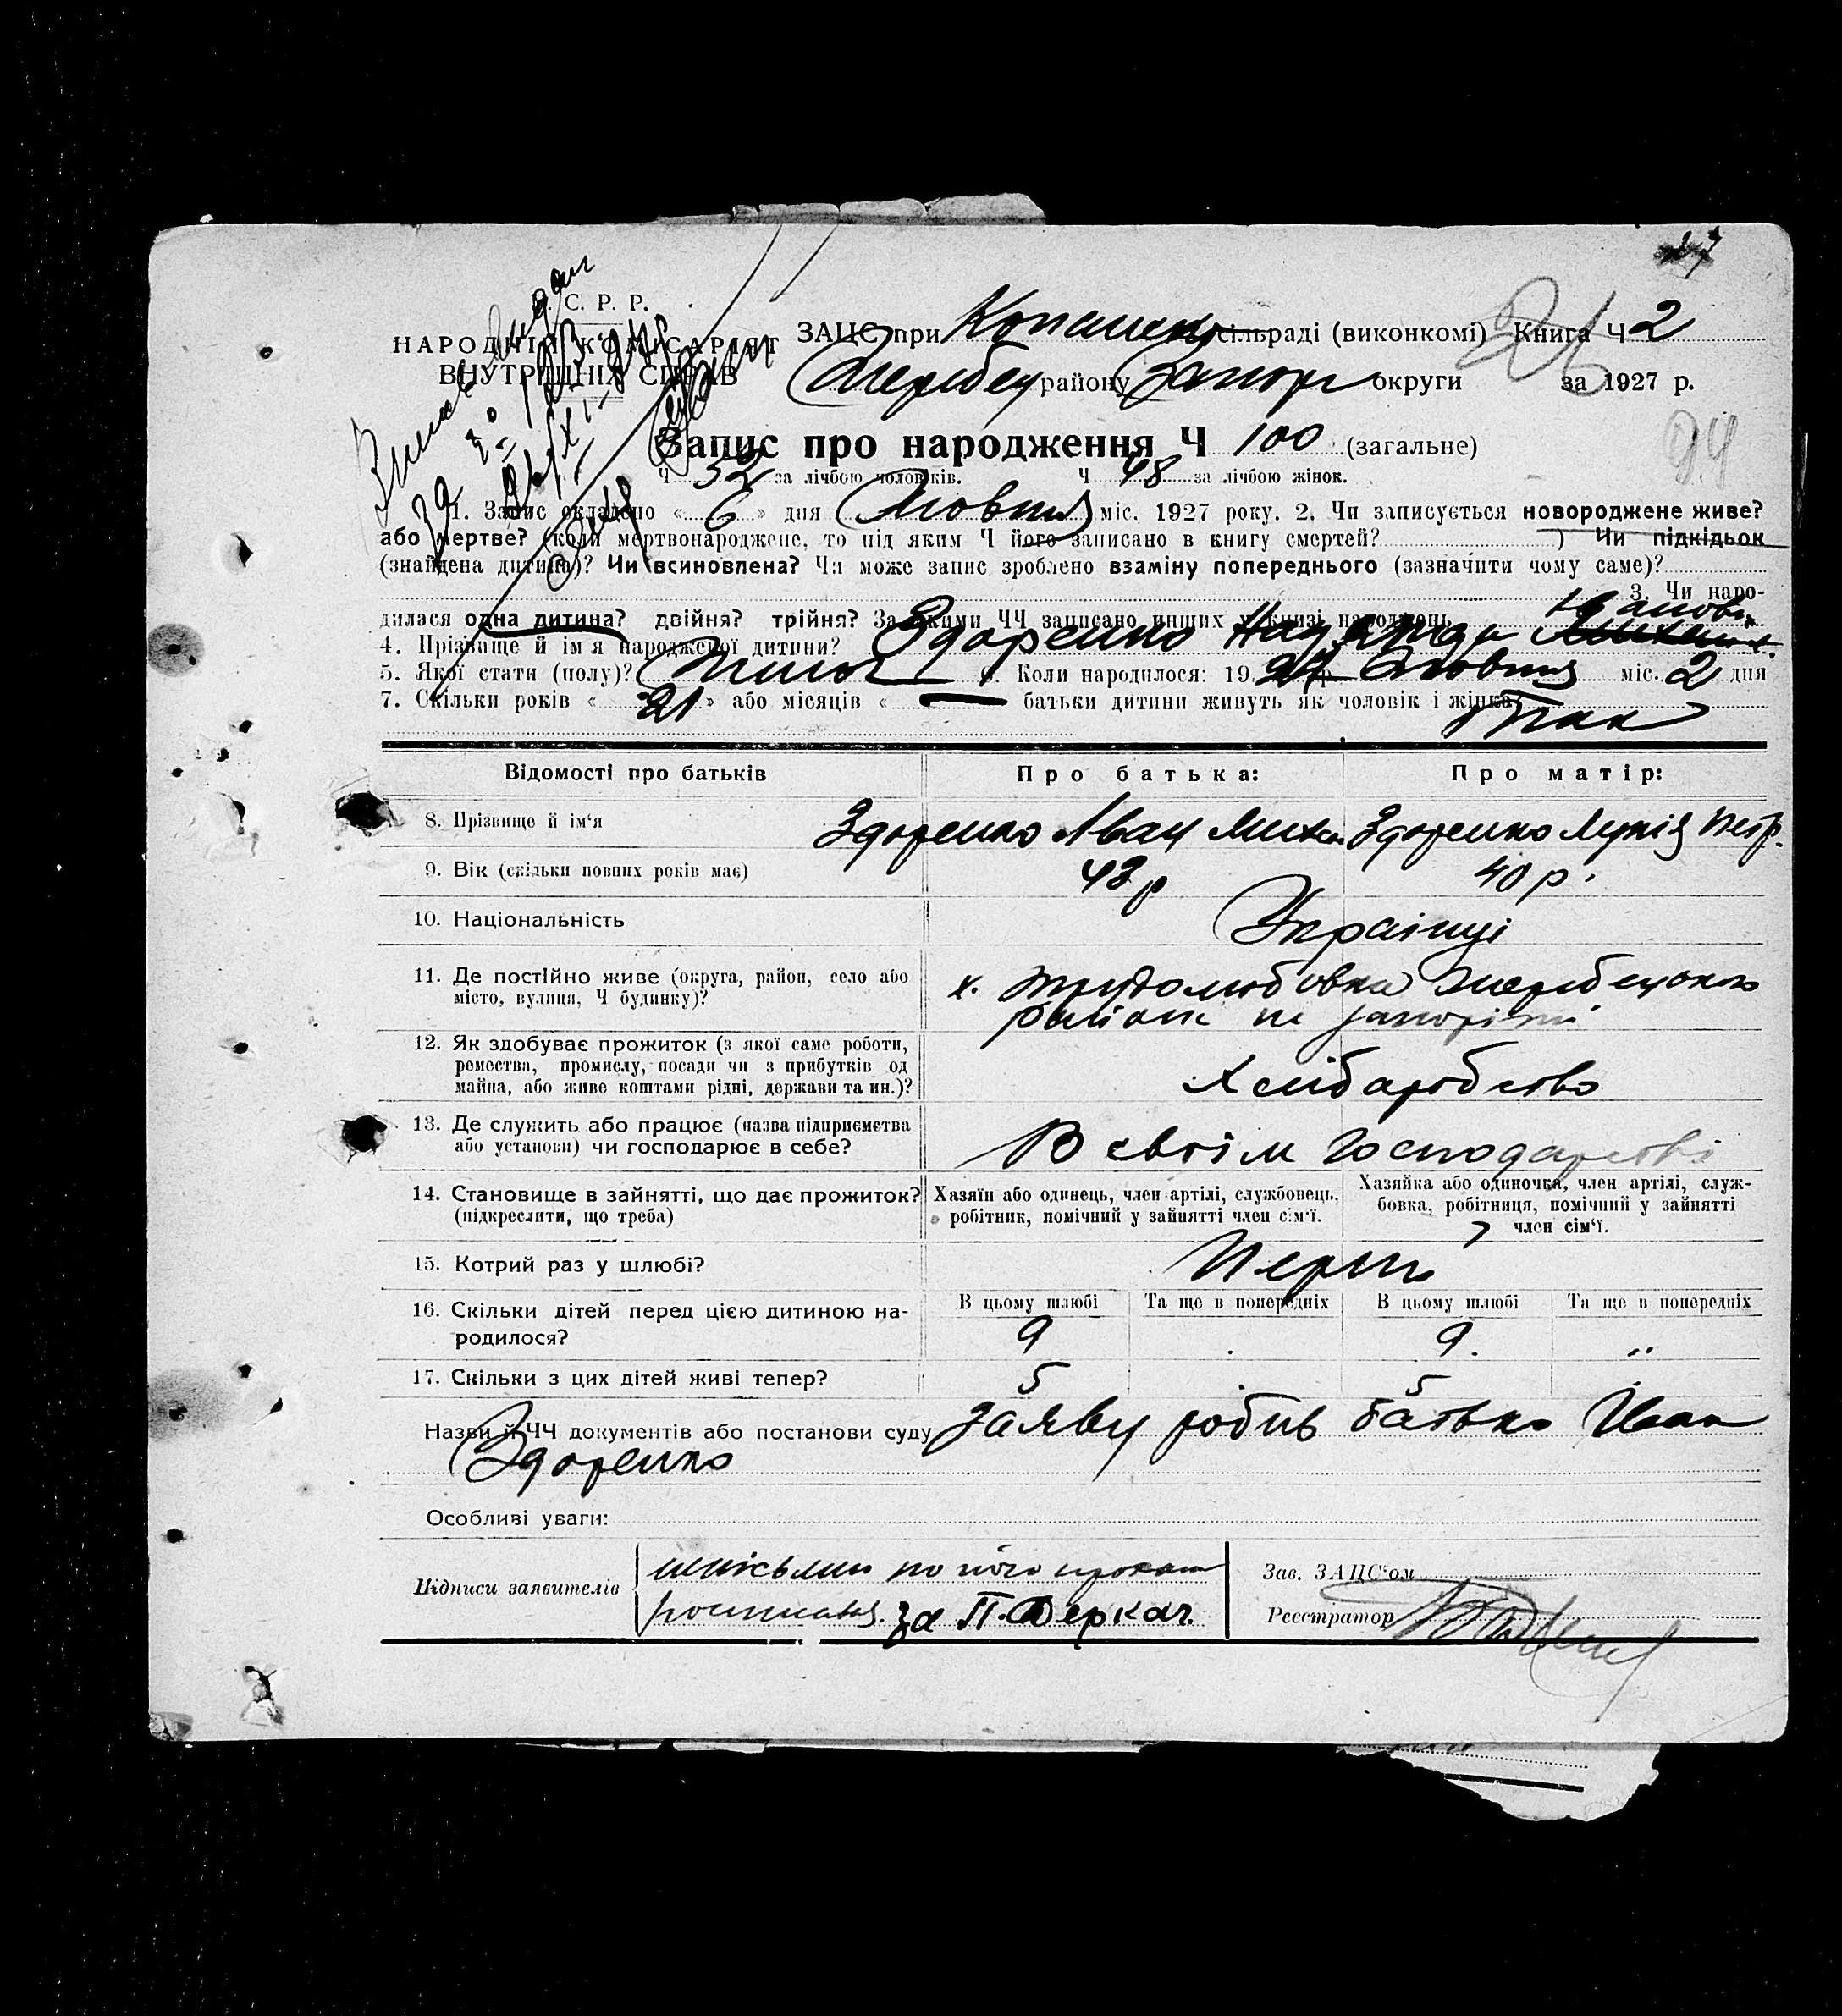 27
С. Р. Р.
НАРОДНІЙ КОМІСАРІЯТ
ВНУТРІШНІХ СПРАВ
ЗАЦС при сільраді (виконкомі) Книга Ч 2
26
району Запор округи за 1927 р.
Запис про народження Ч 100 (загальне)
94
Ч 52 за лічбою чоловіків. Ч 48 за лічбою жінок.
1. Запис складено « 6 » дня Жовтня міс. 1927 року. 2. Чи записується новороджене живе?
або мертве? (коли мертвонароджене, то під яким Ч його записано в книгу смертей? ) Чи підкідьок
(знайдена дитина)? Чи всиновлена? Чи може запис зроблено взаміну попереднього (зазначити чому саме)?
3. Чи наро-
дилася одна дитина? двійня? трійня? За якими ЧЧ записано инших у книзі народжень
4. Прізвище й ім'я народженої дитини? Здоренко Надежда
5. Якої стати (полу)? Жіноч 6. Коли народилося: 1927 р. Жовтня міс. 2 дня
7. Скільки років « 21 » або місяців « — батьки дитини живуть як чоловік і жінка?
Так
Відомості про батьків Про батька: Про матір:
8. Прізвище й ім'я Здоренко Іван Михай Здоренко Лукія Петр.
9. Вік (скільки повних років має) 43 р 40 р.
10. Національність Українці
11. Де постійно живе (округа, район, село або
місто, вулиця, Ч будинку)?
х. Трудолюбовка Жеребецького
району на Запоріжжі
12. Як здобуває прожиток (з якої саме роботи,
ремества, промислу, посади чи з прибутків од
майна, або живе коштами рідні, держави та ин.)?
Хліборобство
13. Де служить або працює (назва підприємства
або установи) чи господарює в себе?
В своїм господарстві
14. Становище в зайнятті, що дає прожиток?
(підкреслити, що треба)
Хазяїн або одинець, член артілі, службовець,
робітник, помічний у зайнятті член сім'ї.
Хазяйка або одиночка, член артілі, служ-
бовка, робітниця, помічний у зайнятті
член сім'ї.
15. Котрий раз у шлюбі?
16. Скільки дітей перед цією дитиною на-
родилося?
В цьому шлюбі Та ще в попередніх В цьому шлюбі Та ще в попередніх
9 9. "
17. Скільки з цих дітей живі тепер? 5 5
Назви й ЧЧ документів або постанови суду Заяву робив батько Иван
Здоренко
Особливі уваги:
Підписи заявителів
неписьмен по його прохан
росписався. за П. Деркач.
Зав. ЗАЦС'ом
Реєстратор